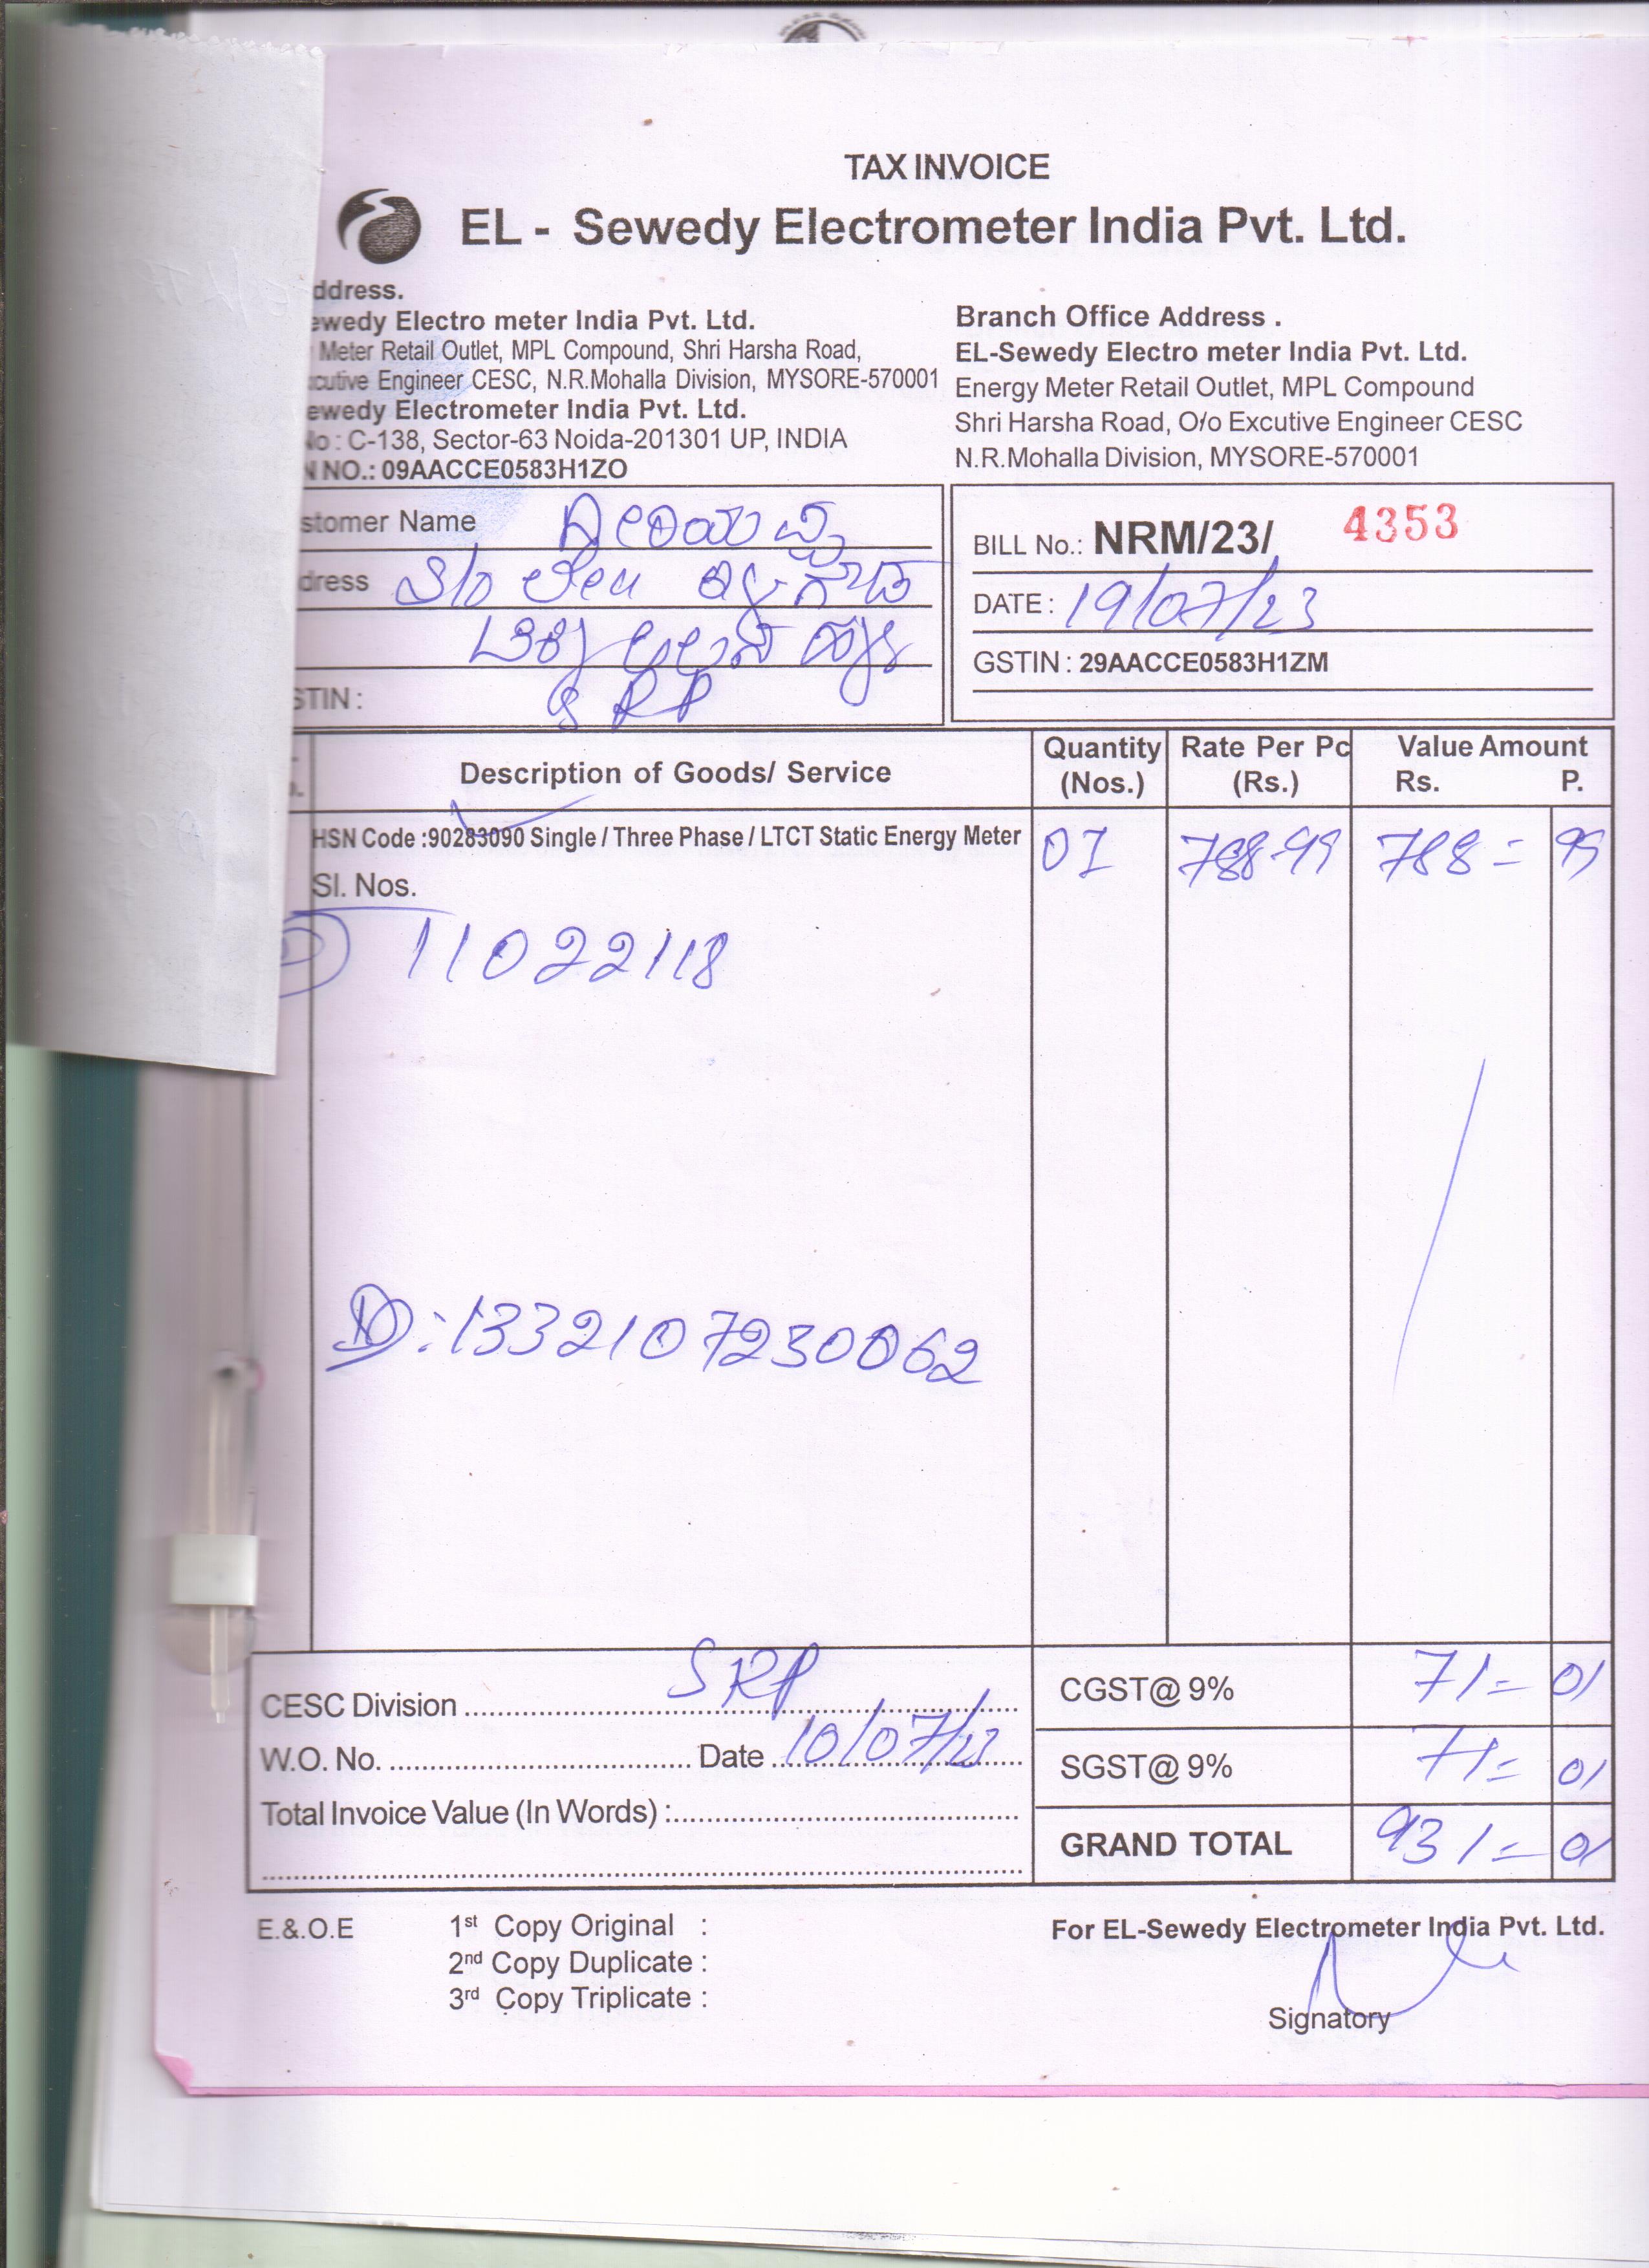 TAX INVOICE
EL - Sewedy Electrometer India Pvt. Ltd.
ddress.
ewedy Electro meter India Pvt. Ltd.
Meter Retail Outlet, MPL Compound, Shri Harsha Road,
cutive Engineer CESC, N.R.Mohalla Division, MYSORE-570001
ewedy Electrometer India Pvt. Ltd.
No : C-138, Sector-63 Noida-201301 UP, INDIA
N NO.: 09AACCE0583H1ZO
Branch Office Address .
EL-Sewedy Electro meter India Pvt. Ltd.
Energy Meter Retail Outlet, MPL Compound
Shri Harsha Road, O/o Excutive Engineer CESC
N.R.Mohalla Division, MYSORE-570001
stomer Name
dress S/o
STIN : SRP
BILL No.: NRM/23/ 4353
DATE : 19/07/23
GSTIN : 29AACCE0583H1ZM
Description of Goods/ Service
Quantity (Nos.)
Rate Per Pc (Rs.)
Value Amount
Rs. P.
HSN Code :90283090 Single / Three Phase / LTCT Static Energy Meter 01 788-99 788 = 99
Sl. Nos.
11022118
D: 1332107230062
CESC Division SRP
W.O. No. Date 10/07/23
Total Invoice Value (In Words) :
CGST@ 9% 71 = 01
SGST@ 9% 71 = 01
GRAND TOTAL 931 = 01
E.&.O.E
1st Copy Original :
2nd Copy Duplicate :
3rd Copy Triplicate :
For EL-Sewedy Electrometer India Pvt. Ltd.
Signatory